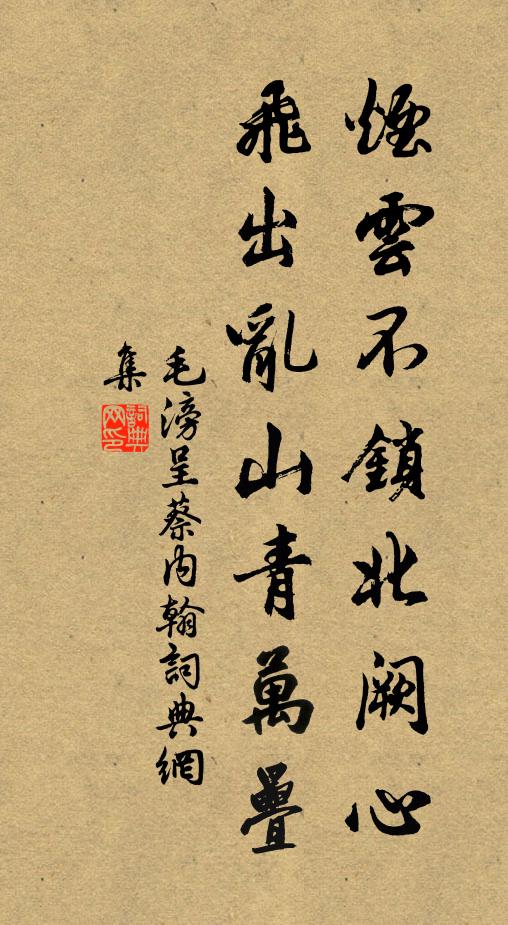 煙雲不鎖北闕心
飛出亂山青萬疊
毛滂呈蔡内翰詞典網
集
詞典
网印